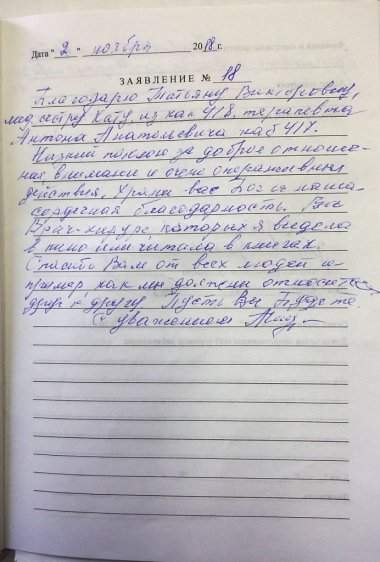 Дата " 2 " ноября 2018 г.
ЗАЯВЛЕНИЕ № 18
Благодарю Татьяну Викторовну,
мед. сестру Катю, из каб 418, терапевта
Антона Анатольевича каб 417.
Низкий поклон за доброе отноше-
ние, внимание и очень оперативные
действия. Храни вас Бог и наша
сердечная благодарность. Вы
Врачи-хирурги которых я видела
в кино или читала в книгах.
Спасибо Вам от всех людей и
пример как мы должны относиться
друг к другу. Пусть Вы будете
С уважением